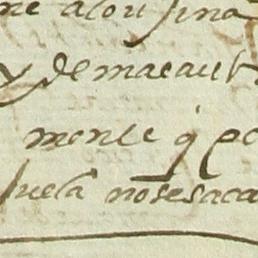 ne alou sina
y demacaut
mente q̃ po
huela nosesaca